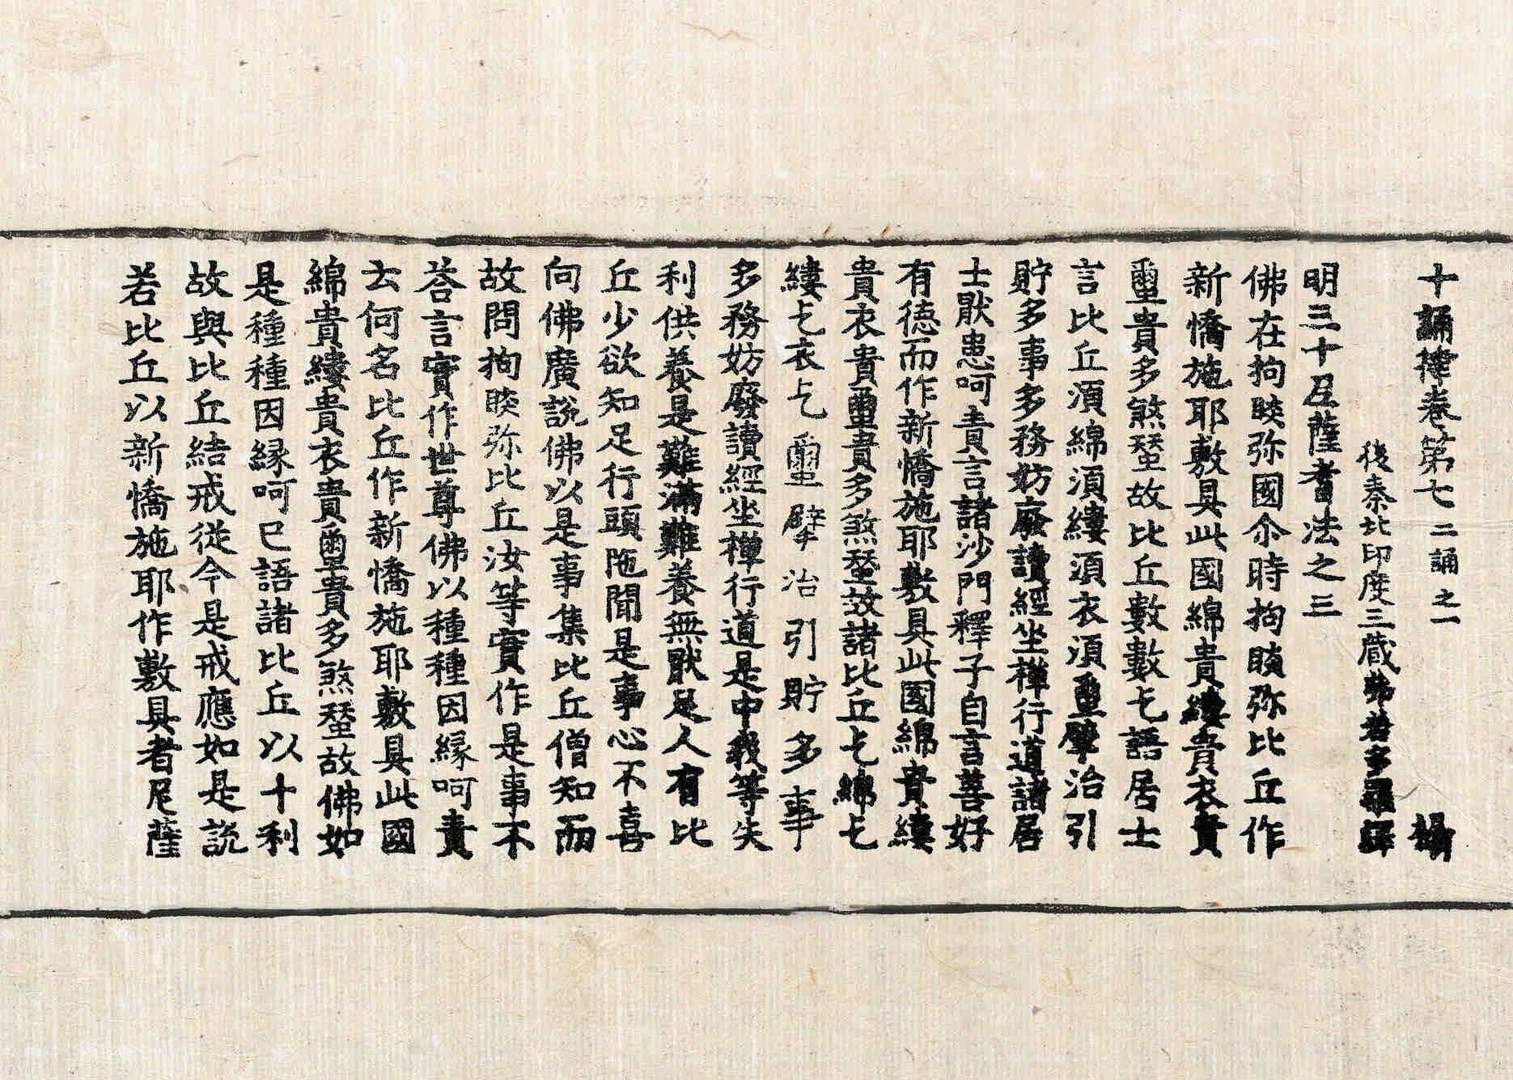 十誦律卷第七 二誦之一 攝
後秦北印度三藏弗若多羅譯
明三十尼薩耆法之三
佛在拘睒弥國尒時拘睒弥比丘作
新憍施耶敷具此國綿貴縷貴衣貴
壐貴多煞蝅故比丘數數乞語居士
言比丘湏綿湏縷湏衣湏壐擘治引
貯多事多務妨廢讀經坐禪行道諸居
士猒患呵責言諸沙門釋子自言善好
有德而作新憍施耶敷具此國綿貴縷
貴衣貴壐貴多煞蝅故諸比丘乞綿乞
縷乞衣乞壐擘治引貯多事
多務妨廢讀經坐禪行道是中我等失
利供養是難滿難養無猒足人有比
丘少欲知足行頭陁聞是事心不喜
向佛廣說佛以是事集比丘僧知而
故問拘睒弥比丘汝等實作是事不
荅言實作世尊佛以種種因緣呵責
云何名比丘作新憍施耶敷具此國
綿貴縷貴衣貴壐貴多煞蝅故佛如
是種種因緣呵已語諸比丘以十利
故與比丘結戒從今是戒應如是說
若比丘以新憍施耶作敷具者尼薩